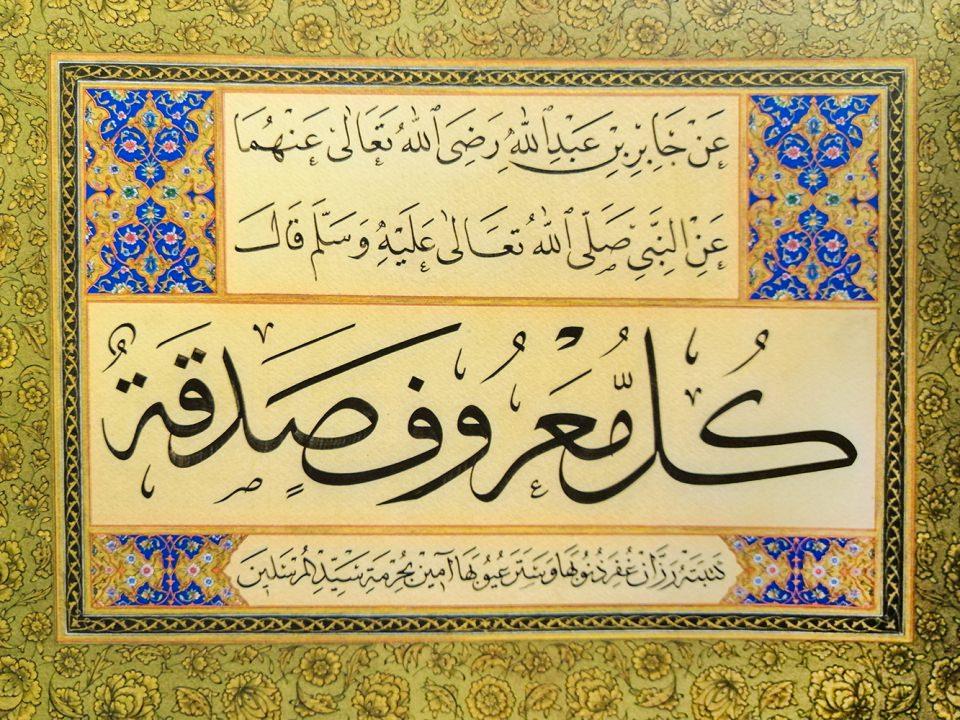 عَنْ جَابِرِ بْنِ عَبْدِ ٱللّٰهِ رَضِىَ ٱللّٰهُ تَعَالٰى عَنْهُمَا
عَنِ النَّبِيِّ صَلَّى ٱللّٰهُ تَعَالٰى عَلَيْهِ وَسَلَّمَ قَالَ
كُلُّ مَعْرُوفٍ صَدَقَةٌ
كتبته رزان غفر ذنوبها وستر عيوبها آمين بحرمة سيد المرسلين